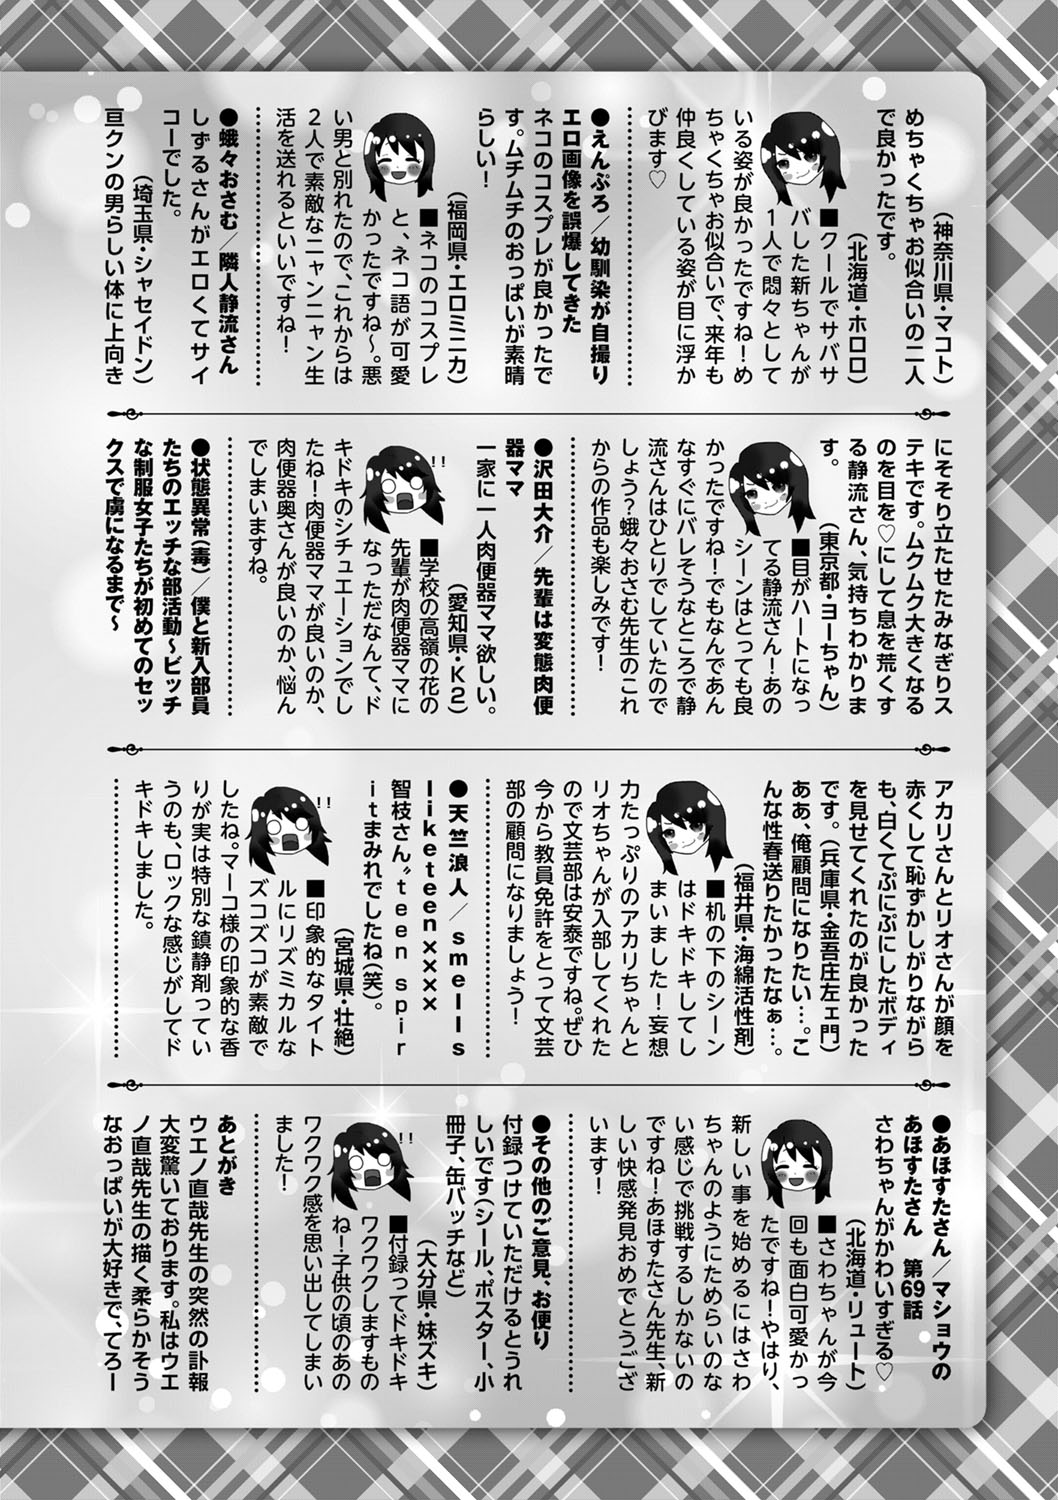 (神奈川県・マコト)
めちゃくちゃお似合いの二人
で良かったです。
(北海道・ホロロ)
■クールでサバサ
バした新ちゃんが
1人で悶々として
いる姿が良かったですね!め
ちゃくちゃお似合いで、来年も
仲良くしている姿が目に浮か
びます♡
●えんぷろ/幼馴染が自撮り
エロ画像を誤爆してきた
ネコのコスプレが良かったで
す。ムチムチのおっぱいが素晴
らしい!
(福岡県・エロミニカ)
■ネコのコスプレ
と、ネコ語が可愛
かったですね〜。悪
い男と別れたので、これからは
2人で素敵なニャンニャン生
活を送れるといいですね!
●蛾々おさむ/隣人静流さん
しずるさんがエロくてサイ
コーでした。
(埼玉県・シャセイドン)
亘クンの男らしい体に上向き
にそそり立たせたみなぎりス
テキです。ムクムク大きくなる
のを目を♡にして息を荒くす
る静流さん、気持ちわかりま
す。
(東京都・ヨーちゃん)
■目がハートになっ
てる静流さん!あの
シーンはとっても良
かったですね!でもなんであん
なすぐにバレそうなところで静
流さんはひとりでしていたので
しょう?蛾々おさむ先生のこれ
からの作品も楽しみです!
●沢田大介/先輩は変態肉便
器ママ
一家に一人肉便器ママ欲しい。
(愛知県・K2)
■学校の高嶺の花の
先輩が肉便器ママに
なっただなんて、ド
キドキのシチュエーションでし
たね!肉便器ママが良いのか、
肉便器奥さんが良いのか、悩ん
でしまいますね。
●状態異常(毒)/僕と新入部員
たちのエッチな部活動〜ビッチ
な制服女子たちが初めてのセッ
クスで虜になるまで〜
アカリさんとリオさんが顔を
赤くして恥ずかしがりながら
も、白くてぷにぷにしたボディ
を見せてくれたのが良かった
です。(兵庫県・金吾庄左ェ門)
ああ、俺顧問になりたい…。こ
んな性春送りたかったなぁ…。
(福井県・海綿活性剤)
■机の下のシーン
はドキドキしてし
まいました!妄想
力たっぷりのアカリちゃんと
リオちゃんが入部してくれた
ので文芸部は安泰ですね。ぜひ
今から教員免許をとって文芸
部の顧問になりましょう!
●天竺浪人/smells
like teen ××××
智枝さん〝teen spir
itまみれでしたね(笑)。
(宮城県・壮絶)
■印象的なタイト
ルにリズミカルな
ズコズコが素敵で
したね。マーコ様の印象的な香
りが実は特別な鎮静剤ってい
うのも、ロックな感じがしてド
キドキしました。
●あほすたさん/マショウの
あほすたさん 第69話
さわちゃんがかわいすぎる♡
(北海道・リュート)
■さわちゃんが今
回も面白可愛かっ
たですね!やはり、
新しい事を始めるにはさわ
ちゃんのようにためらいのな
い感じで挑戦するしかないの
ですね!あほすたさん先生、新
しい快感発見おめでとうござ
います!
●その他のご意見、お便り
付録つけていただけるとうれ
しいです(シール、ポスター、小
冊子、缶バッチなど)
(大分県・妹ズキ)
■付録ってドキドキ
ワクワクしますもの
ね!子供の頃のあの
ワクワク感を思い出してしまい
ました!
あとがき
ウエノ直哉先生の突然の訃報
大変驚いております。私はウエ
ノ直哉先生の描く柔らかそう
なおっぱいが大好きで、てろー